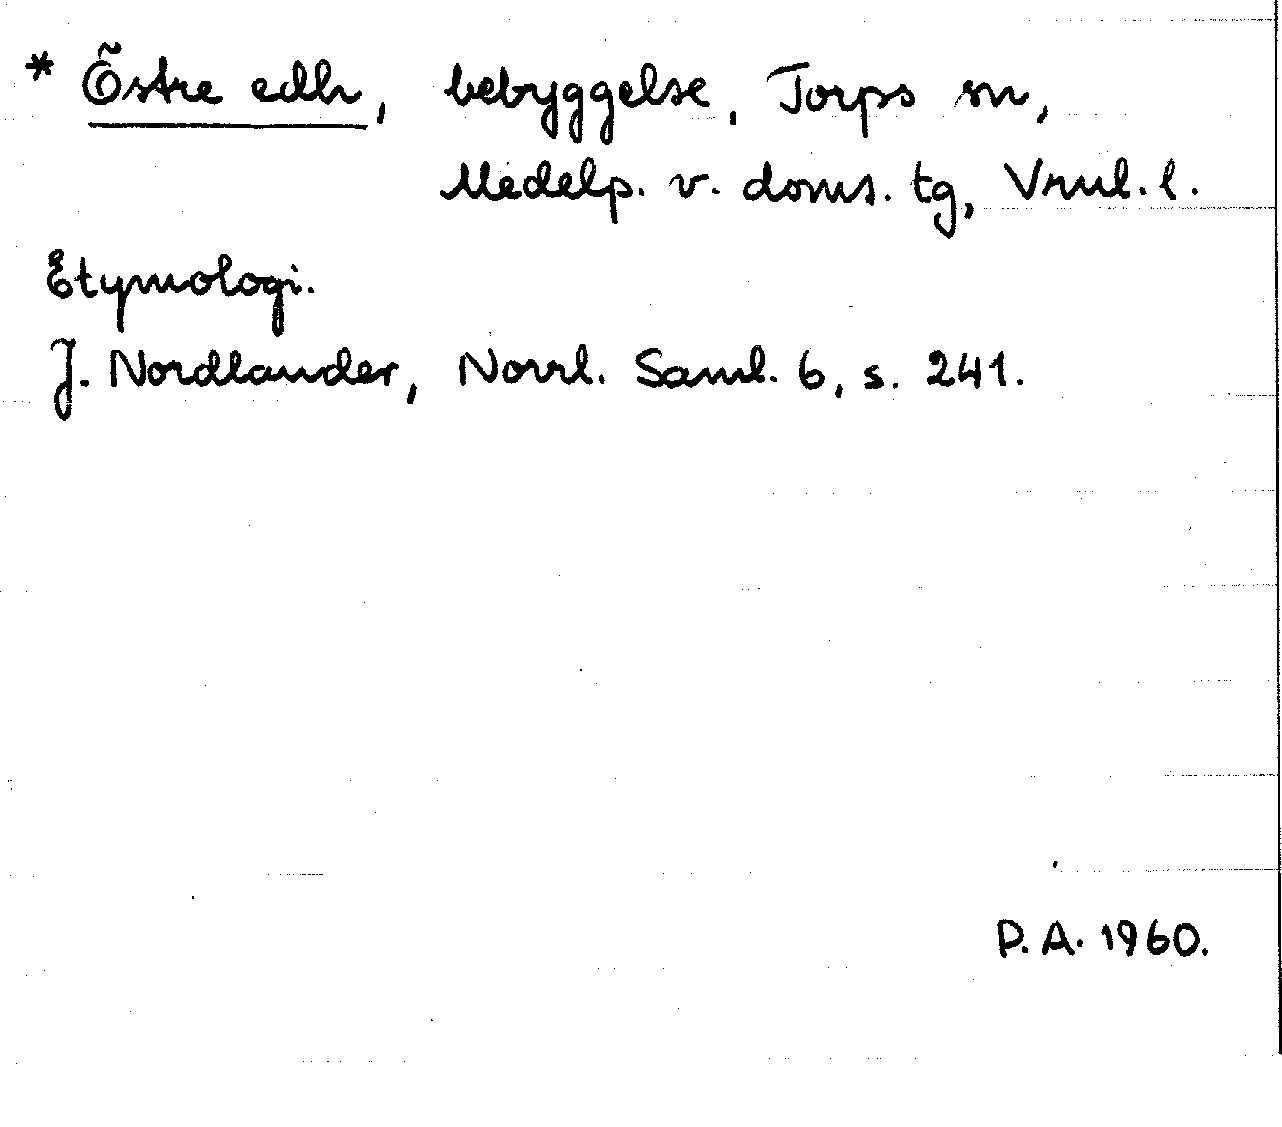 * Östre edh, bebyggelse, Torps sn,
Medelp. v. doms. tg, Vrnl. l.
Etymologi.
J. Nordlander, Norrl. Saml. 6, s. 241.
P. A. 1960.